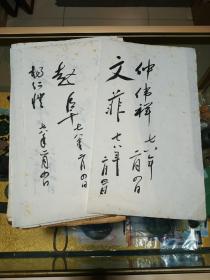 仲伟祥 七八年
二月四日
文菲 七八年
二月四日
赵阜 七八年
二月四日
杨仁恺 七八年二月四日